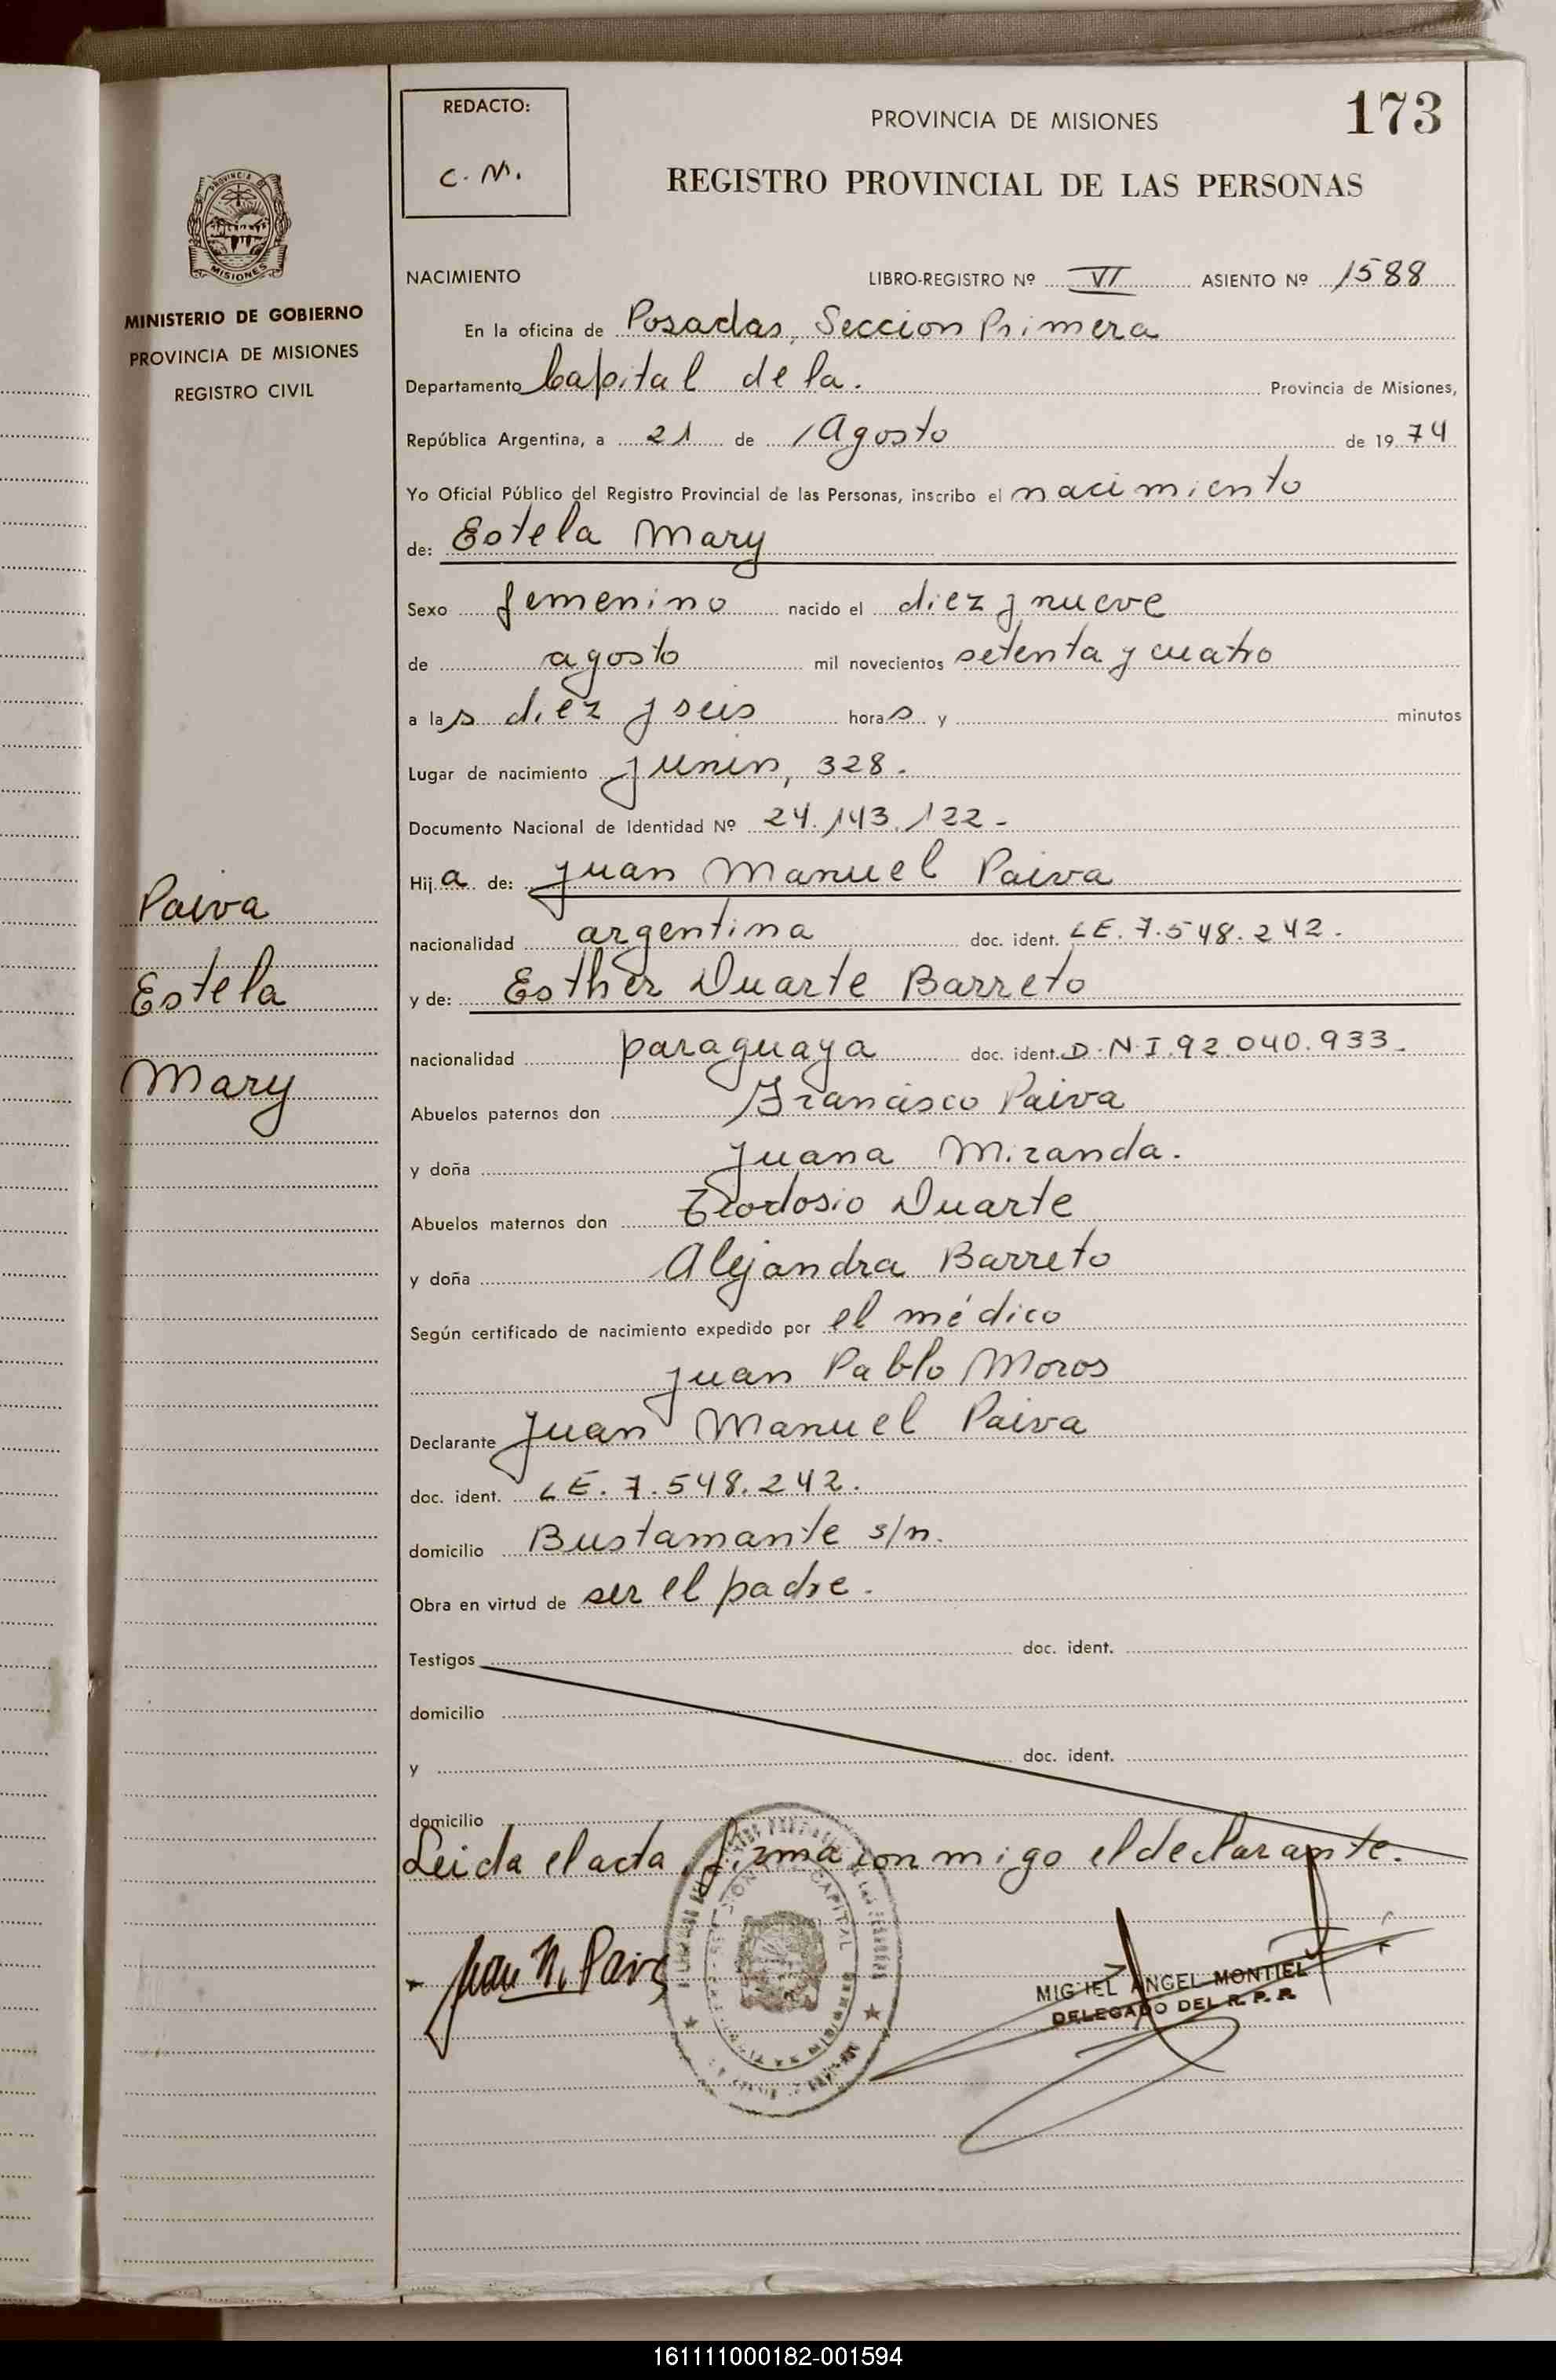 REDACTO:
C. M.
PROVINCIA DE MISIONES
173
REGISTRO PROVINCIAL DE LAS PERSONAS
PROVINCIA DE
MISIONES
MINISTERIO DE GOBIERNO
PROVINCIA DE MISIONES
REGISTRO CIVIL
NACIMIENTO LIBRO-REGISTRO Nº VI ASIENTO Nº 1588
En la oficina de Posadas, Seccion Primera
Departamento Capital de la. Provincia de Misiones,
República Argentina, a 21 de Agosto de 19 74
Yo Oficial Público del Registro Provincial de las Personas, inscribo el nacimiento
de: Estela Mary
Sexo femenino nacido el diez y nueve
de agosto mil novecientos setenta y cuatro
a las diez y seis horas y minutos
Lugar de nacimiento Junin, 328.
Documento Nacional de Identidad Nº 24.143.122-
Hija de: Juan Manuel Paiva
nacionalidad argentina doc. ident. LE. 7.548.242.
y de: Esther Duarte Barreto
nacionalidad paraguaya doc. ident. D.N.I. 92.040.933.
Abuelos paternos don Francisco Paiva
y doña Juana Miranda.
Abuelos maternos don Teodosio Duarte
y doña Alejandra Barreto
Según certificado de nacimiento expedido por el médico
Juan Pablo Moros
Declarante Juan Manuel Paiva
doc. ident. LE. 7.548.242.
domicilio Bustamante s/n.
Obra en virtud de ser el padre.
Testigos doc. ident.
domicilio
y doc. ident.
domicilio
Leida el acta, firma conmigo el declarante.
Paiva
Estela
Mary
Juan M. Paiva
CAPITAL
MIGUEL ANGEL MONTIEL
DELEGADO DEL R. P. P.
161111000182-001594